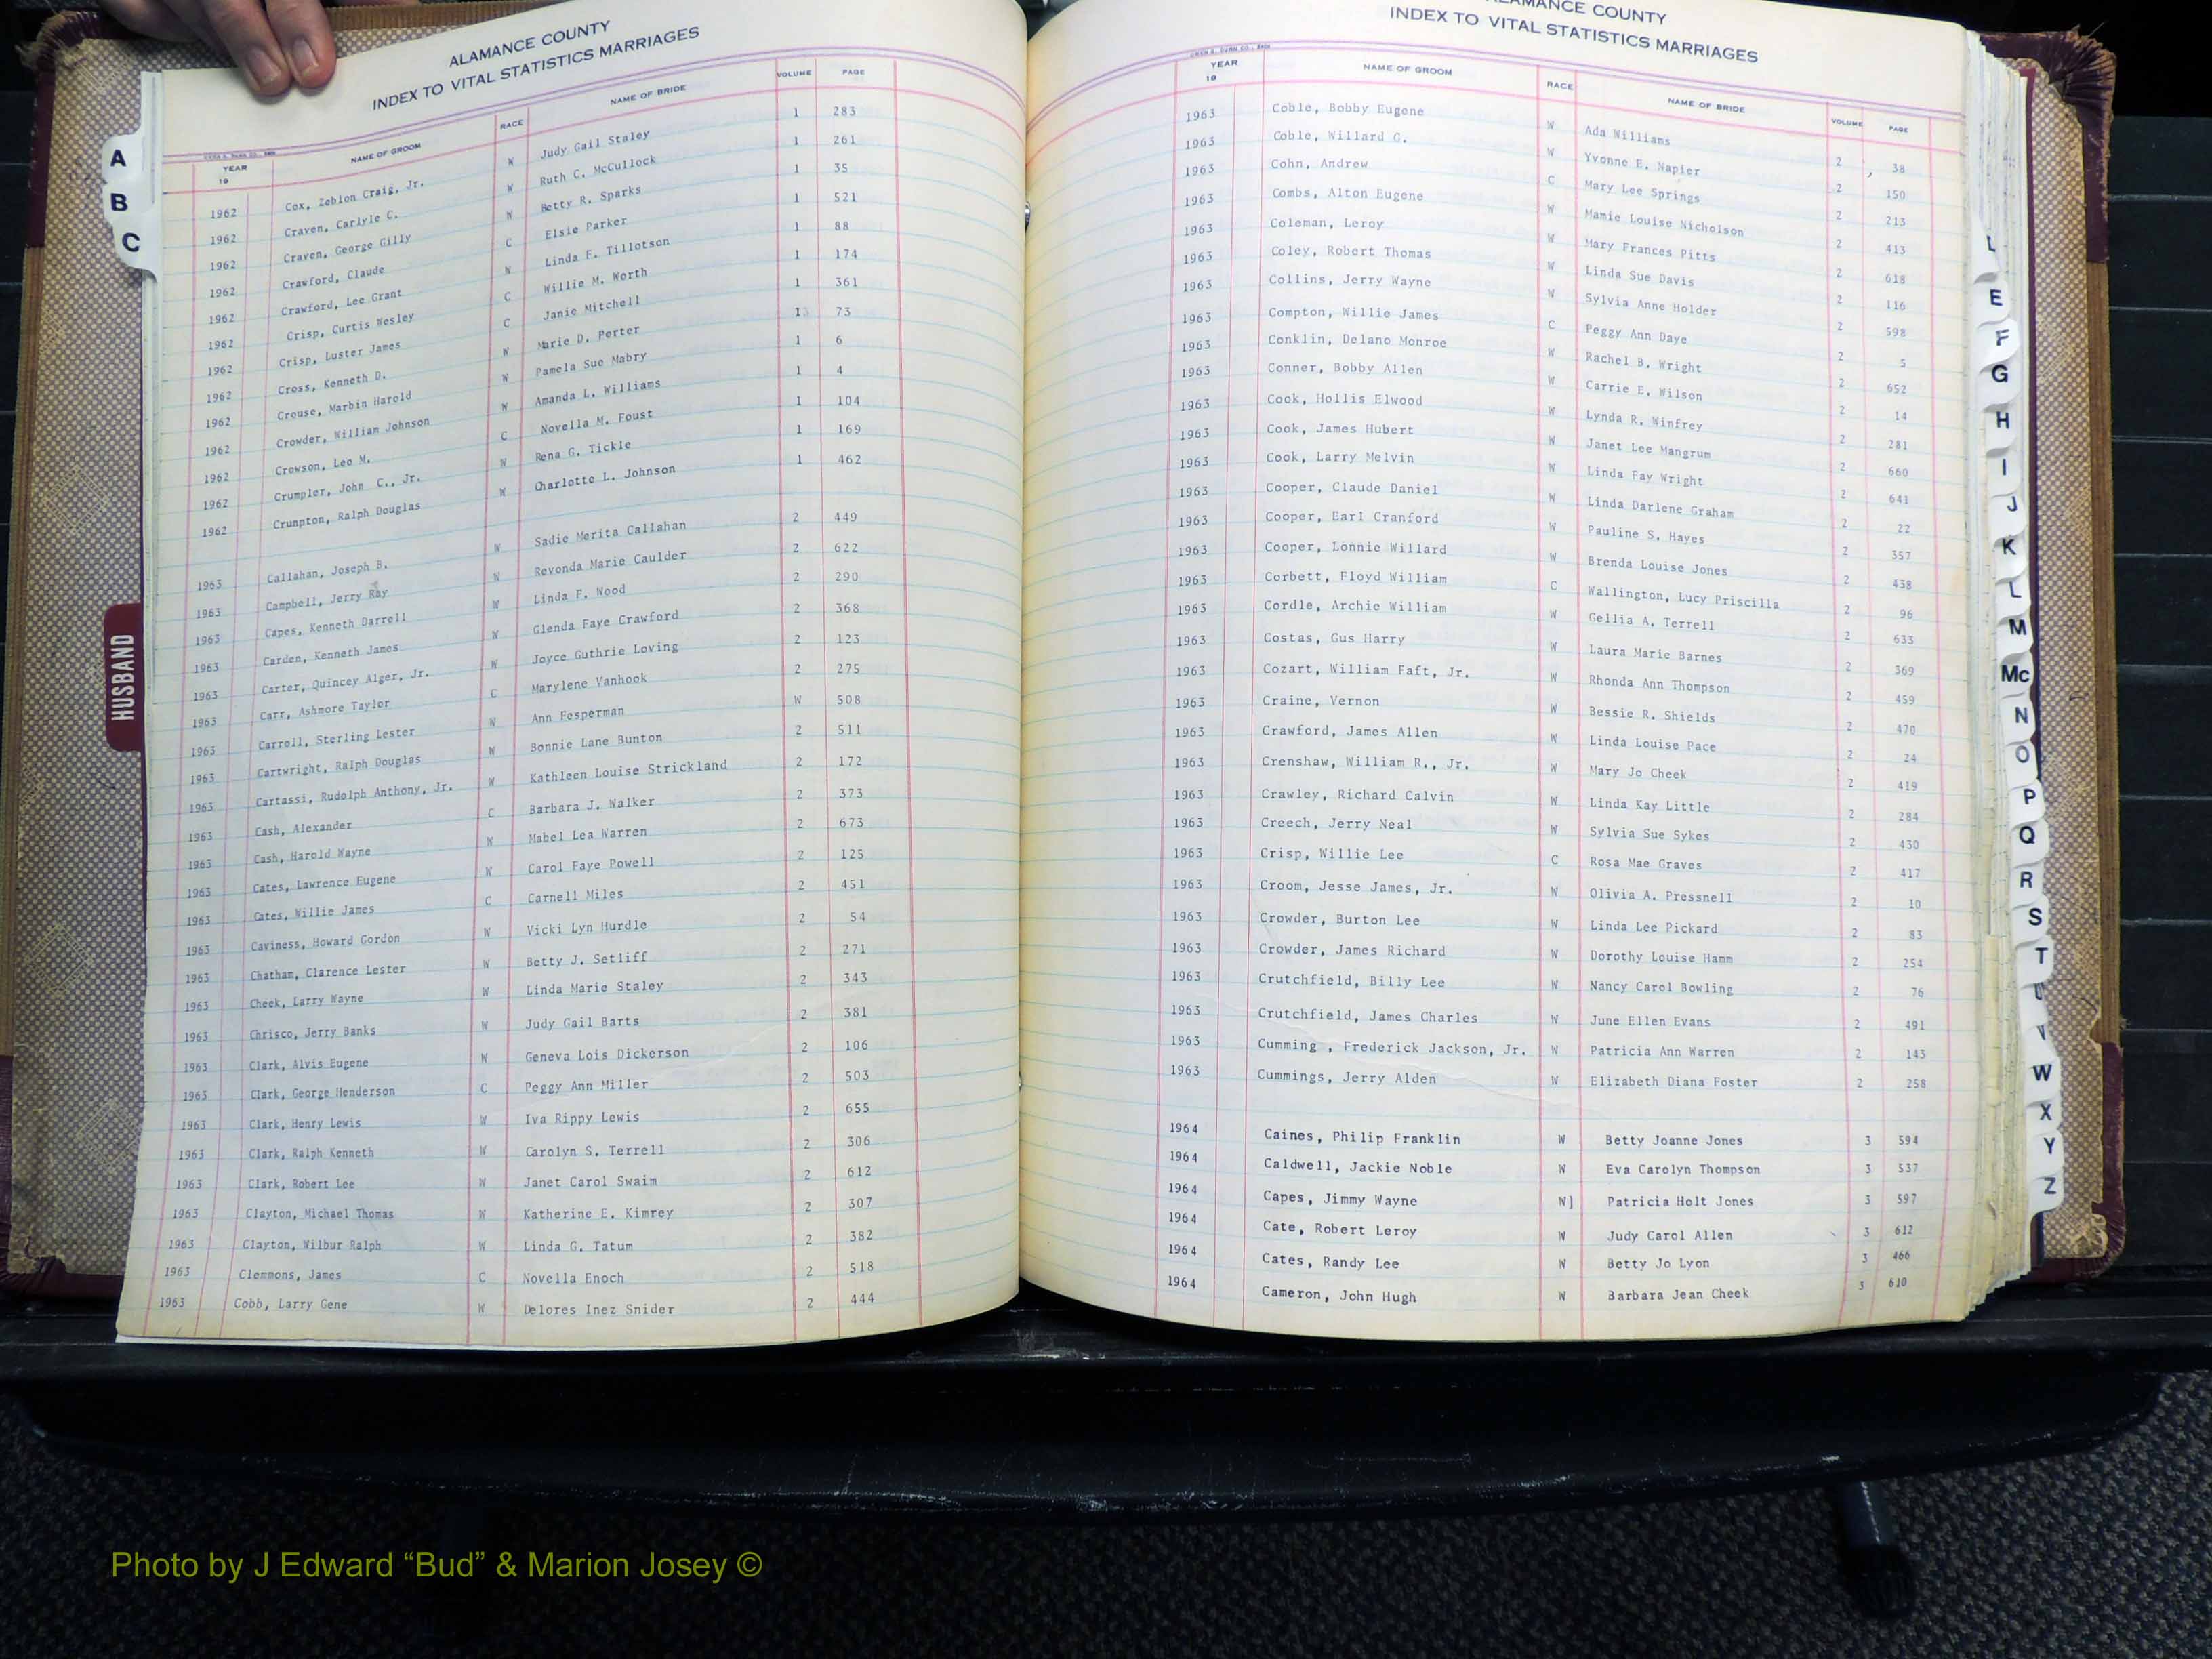 ALAMANCE COUNTY
INDEX TO VITAL STATISTICS MARRIAGES
YEAR 19 NAME OF GROOM RACE NAME OF BRIDE VOLUME PAGE
1962 Cox, Zeblon Craig, Jr. W Judy Gail Staley 1 283
1962 Craven, Carlyle C. W Ruth C. McCullock 1 261
1962 Craven, George Gilly W Betty R. Sparks 1 35
1962 Crawford, Claude C Elsie Parker 1 521
1962 Crawford, Lee Grant W Linda F. Tillotson 1 88
1962 Crisp, Curtis Wesley C Willie M. Worth 1 174
1962 Crisp, Luster James C Janie Mitchell 1 361
1962 Cross, Kenneth D. W Marie D. Porter 1 73
1962 Crouse, Marbin Harold W Pamela Sue Mabry 1 6
1962 Crowder, William Johnson W Amanda L. Williams 1 4
1962 Crowson, Leo M. C Novella M. Foust 1 104
1962 Crumpler, John C., Jr. W Rena G. Tickle 1 169
1962 Crunpton, Ralph Douglas W Charlotte L. Johnson 1 462
1963 Callahan, Joseph B. W Sadie Merita Callahan 2 449
1963 Campbell, Jerry Ray W Revonda Marie Caulder 2 622
1963 Capes, Kenneth Darrell W Linda F. Wood 2 290
1963 Carden, Kenneth James W Glenda Faye Crawford 2 368
1963 Carter, Quincey Alger, Jr. W Joyce Guthrie Loving 2 123
1963 Carr, Ashmore Taylor C Marylene Vanhook 2 275
1963 Carroll, Sterling Lester W Ann Fesperman W 508
1963 Cartwright, Ralph Douglas W Bonnie Lane Bunton 2 511
1963 Cartassi, Rudolph Anthony, Jr. W Kathleen Louise Strickland 2 172
1963 Cash, Alexander C Barbara J. Walker 2 373
1963 Cash, Harold Wayne W Mabel Lea Warren 2 673
1963 Cates, Lawrence Eugene W Carol Faye Powell 2 125
1963 Cates, Willie James C Carnell Miles 2 451
1963 Caviness, Howard Gordon W Vicki Lyn Hurdle 2 54
1963 Chatham, Clarence Lester W Betty J. Setliff 2 271
1963 Cheek, Larry Wayne W Linda Marie Staley 2 343
1963 Chrisco, Jerry Banks W Judy Gail Barts 2 381
1963 Clark, Alvis Eugene W Geneva Lois Dickerson 2 106
1963 Clark, George Henderson C Peggy Ann Miller 2 503
1963 Clark, Henry Lewis W Iva Rippy Lewis 2 655
1963 Clark, Ralph Kenneth W Carolyn S. Terrell 2 306
1963 Clark, Robert Lee W Janet Carol Swaim 2 612
1963 Clayton, Michael Thomas W Katherine E. Kimrey 2 307
1963 Clayton, Wilbur Ralph W Linda G. Tatum 2 382
1963 Clemmons, James C Novella Enoch 2 518
1963 Cobb, Larry Gene W Delores Inez Snider 2 444
A
B
C
HUSBAND
ALAMANCE COUNTY
INDEX TO VITAL STATISTICS MARRIAGES
YEAR 19 NAME OF GROOM RACE NAME OF BRIDE VOLUME PAGE
1963 Coble, Bobby Eugene W Ada Williams 2 38
1963 Coble, Willard G. W Yvonne E. Napier 2 150
1963 Cohn, Andrew C Mary Lee Springs 2 213
1963 Combs, Alton Eugene W Mamie Louise Nicholson 2 413
1963 Coleman, Leroy W Mary Frances Pitts 2 618
1963 Coley, Robert Thomas W Linda Sue Davis 2 116
1963 Collins, Jerry Wayne W Sylvia Anne Holder 2 598
1963 Compton, Willie James C Peggy Ann Daye 2 5
1963 Conklin, Delano Monroe W Rachel B. Wright 2 652
1963 Conner, Bobby Allen W Carrie E. Wilson 2 14
1963 Cook, Hollis Elwood W Lynda R. Winfrey 2 281
1963 Cook, James Hubert W Janet Lee Mangrum 2 660
1963 Cook, Larry Melvin W Linda Fay Wright 2 641
1963 Cooper, Claude Daniel W Linda Darlene Graham 2 22
1963 Cooper, Earl Cranford W Pauline S. Hayes 2 357
1963 Cooper, Lonnie Willard W Brenda Louise Jones 2 438
1963 Corbett, Floyd William C Wallington, Lucy Priscilla 2 96
1963 Cordle, Archie William W Gellia A. Terrell 2 633
1963 Costas, Gus Harry W Laura Marie Barnes 2 369
1963 Cozart, William Faft, Jr. W Rhonda Ann Thompson 2 459
1963 Craine, Vernon W Bessie R. Shields 2 470
1963 Crawford, James Allen W Linda Louise Pace 2 24
1963 Crenshaw, William R., Jr. W Mary Jo Cheek 2 419
1963 Crawley, Richard Calvin W Linda Kay Little 2 284
1963 Creech, Jerry Neal W Sylvia Sue Sykes 2 430
1963 Crisp, Willie Lee C Rosa Mae Graves 2 417
1963 Croom, Jesse James, Jr. W Olivia A. Pressnell 2 10
1963 Crowder, Burton Lee W Linda Lee Pickard 2 83
1963 Crowder, James Richard W Dorothy Louise Hamm 2 254
1963 Crutchfield, Billy Lee W Nancy Carol Bowling 2 76
1963 Crutchfield, James Charles W June Ellen Evans 2 491
1963 Cumming , Frederick Jackson, Jr. W Patricia Ann Warren 2 143
1963 Cummings, Jerry Alden W Elizabeth Diana Foster 2 258
1964 Caines, Philip Franklin W Betty Joanne Jones 3 594
1964 Caldwell, Jackie Noble W Eva Carolyn Thompson 3 537
1964 Capes, Jimmy Wayne W] Patricia Holt Jones 3 597
1964 Cate, Robert Leroy W Judy Carol Allen 3 612
1964 Cates, Randy Lee W Betty Jo Lyon 3 466
1964 Cameron, John Hugh W Barbara Jean Cheek 3 610
E
F
G
H
I
J
K
L
M
Mc
N
O
P
Q
R
S
T
U
V
W
X
Y
Z
Photo by J Edward “Bud” & Marion Josey ©